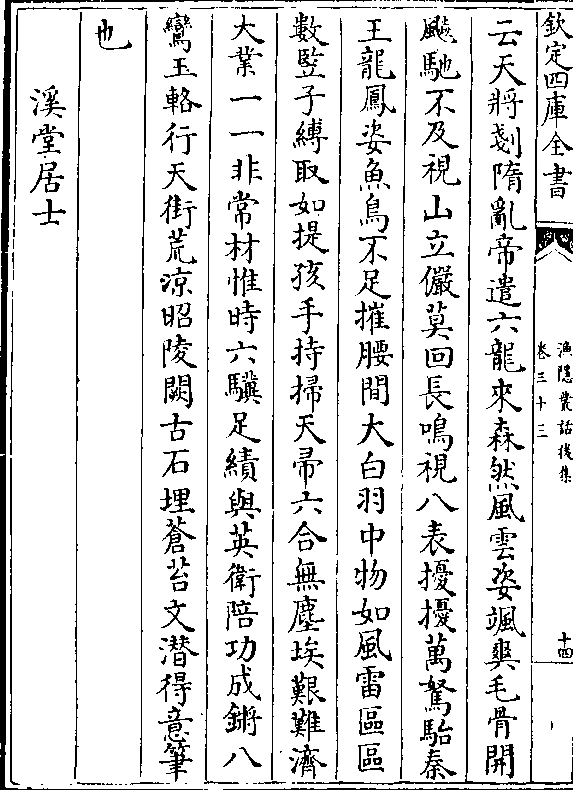 欽定四庫全書
漁隱叢話後集
卷三十三
十四
云天將剗隋亂帝遣六龍來森然風雲姿颯爽毛骨開
飇馳不及視山立儼莫回長鳴視八表擾擾萬駑駘秦
王龍鳳姿魚鳥不足摧腰間大白羽中物如風雷區區
數豎子縛取如提孩手持掃天帚六合無塵埃艱難濟
大業一一非常材惟時六驥足績與英衛陪功成鏘八
鸞玉輅行天街荒凉昭陵闕古石埋蒼苔文潛得意筆
也
溪堂居士